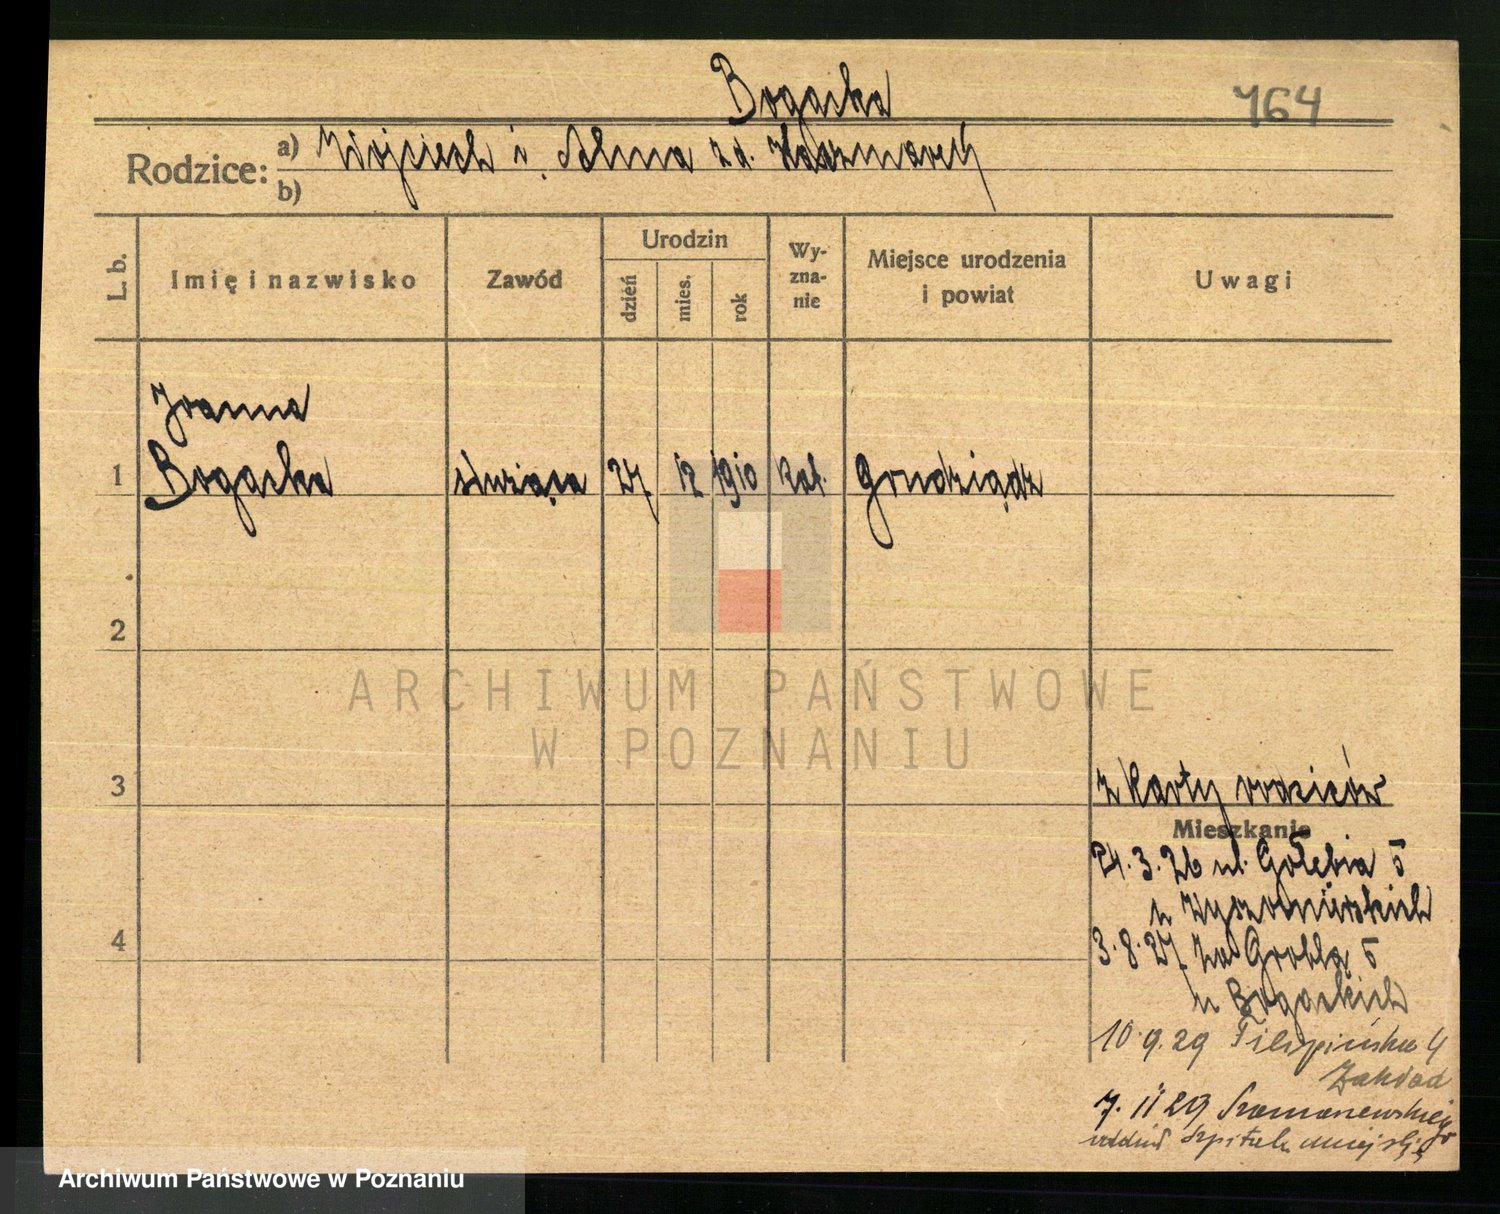 Bogacka
764
Rodzice: a) Wojciech i Alma z d. Kaczmarek
b)
L. b.
Imię i nazwisko
Zawód
Urodzin
dzień
mies.
rok
Wy-
zna-
nie
Miejsce urodzenia
i powiat
Uwagi
Joanna
1 Bogacka służąca 27 12 1910 kat. Grudziądz
2
ARCHIWUM PAŃSTWOWE
W POZNANIU
3
z karty rodziców
Mieszkanie
24.3.26 ul. Gołębia 5
u
3.8.27 Za Groblą 5
u Bogackich
4
10.9.29 4
Zakład
7. 11 29 Szamarzewskiego
oddział Szpitala miejski
Archiwum Państwowe w Poznaniu